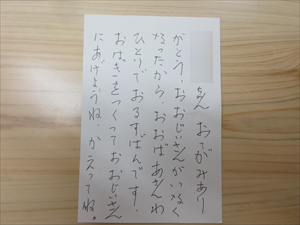 ちゃん おてがみあり
がとう、おおじいさんがいなく
なったから、おおばあさんわ
ひとりでおるすばんです。
おはぎをつくっておおじいさん
にあげようね、かえってね。